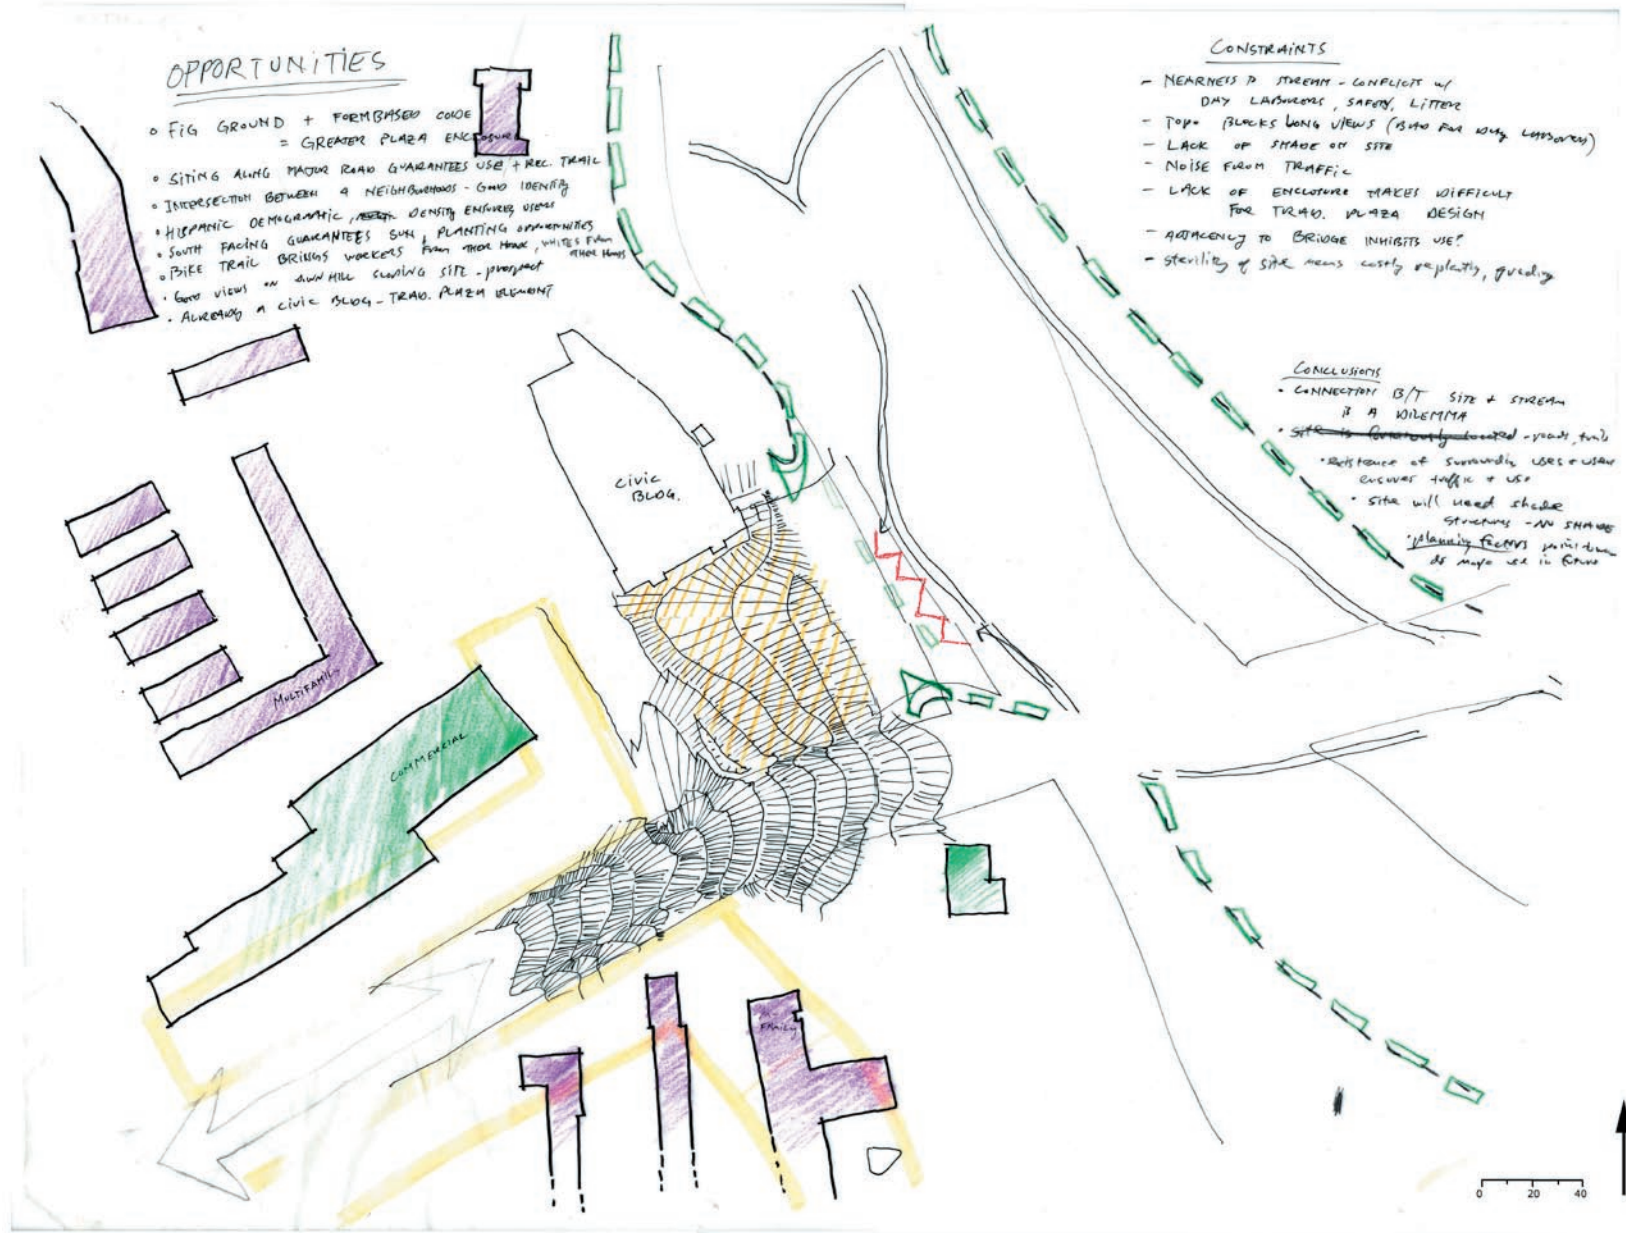 OPPORTUNITIES
FIG GROUND + FORMBASED CODE
= GREATER PLAZA ENCLOSURE
SITING ALONG MAJOR ROAD GUARANTEES USE + REC. TRAIL
INTERSECTION BETWEEN 4 NEIGHBORHOODS - GOOD IDENTITY
HISPANIC DEMOGRAPHIC, DENSITY ENSURES USERS
SOUTH FACING GUARANTEES SUN, PLANTING OPPORTUNITIES
BIKE TRAIL BRINGS WORKERS FROM THER HOODS, WHITES FROM
OTHER HOODS
GOOD VIEWS ON DOWN HILL SLOPING SITE - prospect
ALREADY A CIVIC BLDG - TRAD. PLAZA ELEMENT
CONSTRAINTS
- NEARNESS TO STREAM - CONFLICTS w/
DAY LABOURERS, SAFETY, LITTER
- TOPO BLOCKS LONG VIEWS (BAD FOR DAY LABORERS)
- LACK OF SHADE ON SITE
- NOISE FROM TRAFFIC
- LACK OF ENCLOSURE MAKES DIFFICULT
FOR TRAD. PLAZA DESIGN
- ADJACENCY TO BRIDGE INHIBITS USE?
- sterility of site means costly replanting, grading
CONCLUSIONS
CONNECTION B/T SITE + STREAM
IS A DILEMMA
site is located - roads, trails
existence of surrounding uses + users
ensures traffic + use
site will need shade
structures - NO SHADE
planning factors point
use in future
CIVIC
BLDG.
MULTIFAMILY
COMMERCIAL
FAMILY
0 20 40